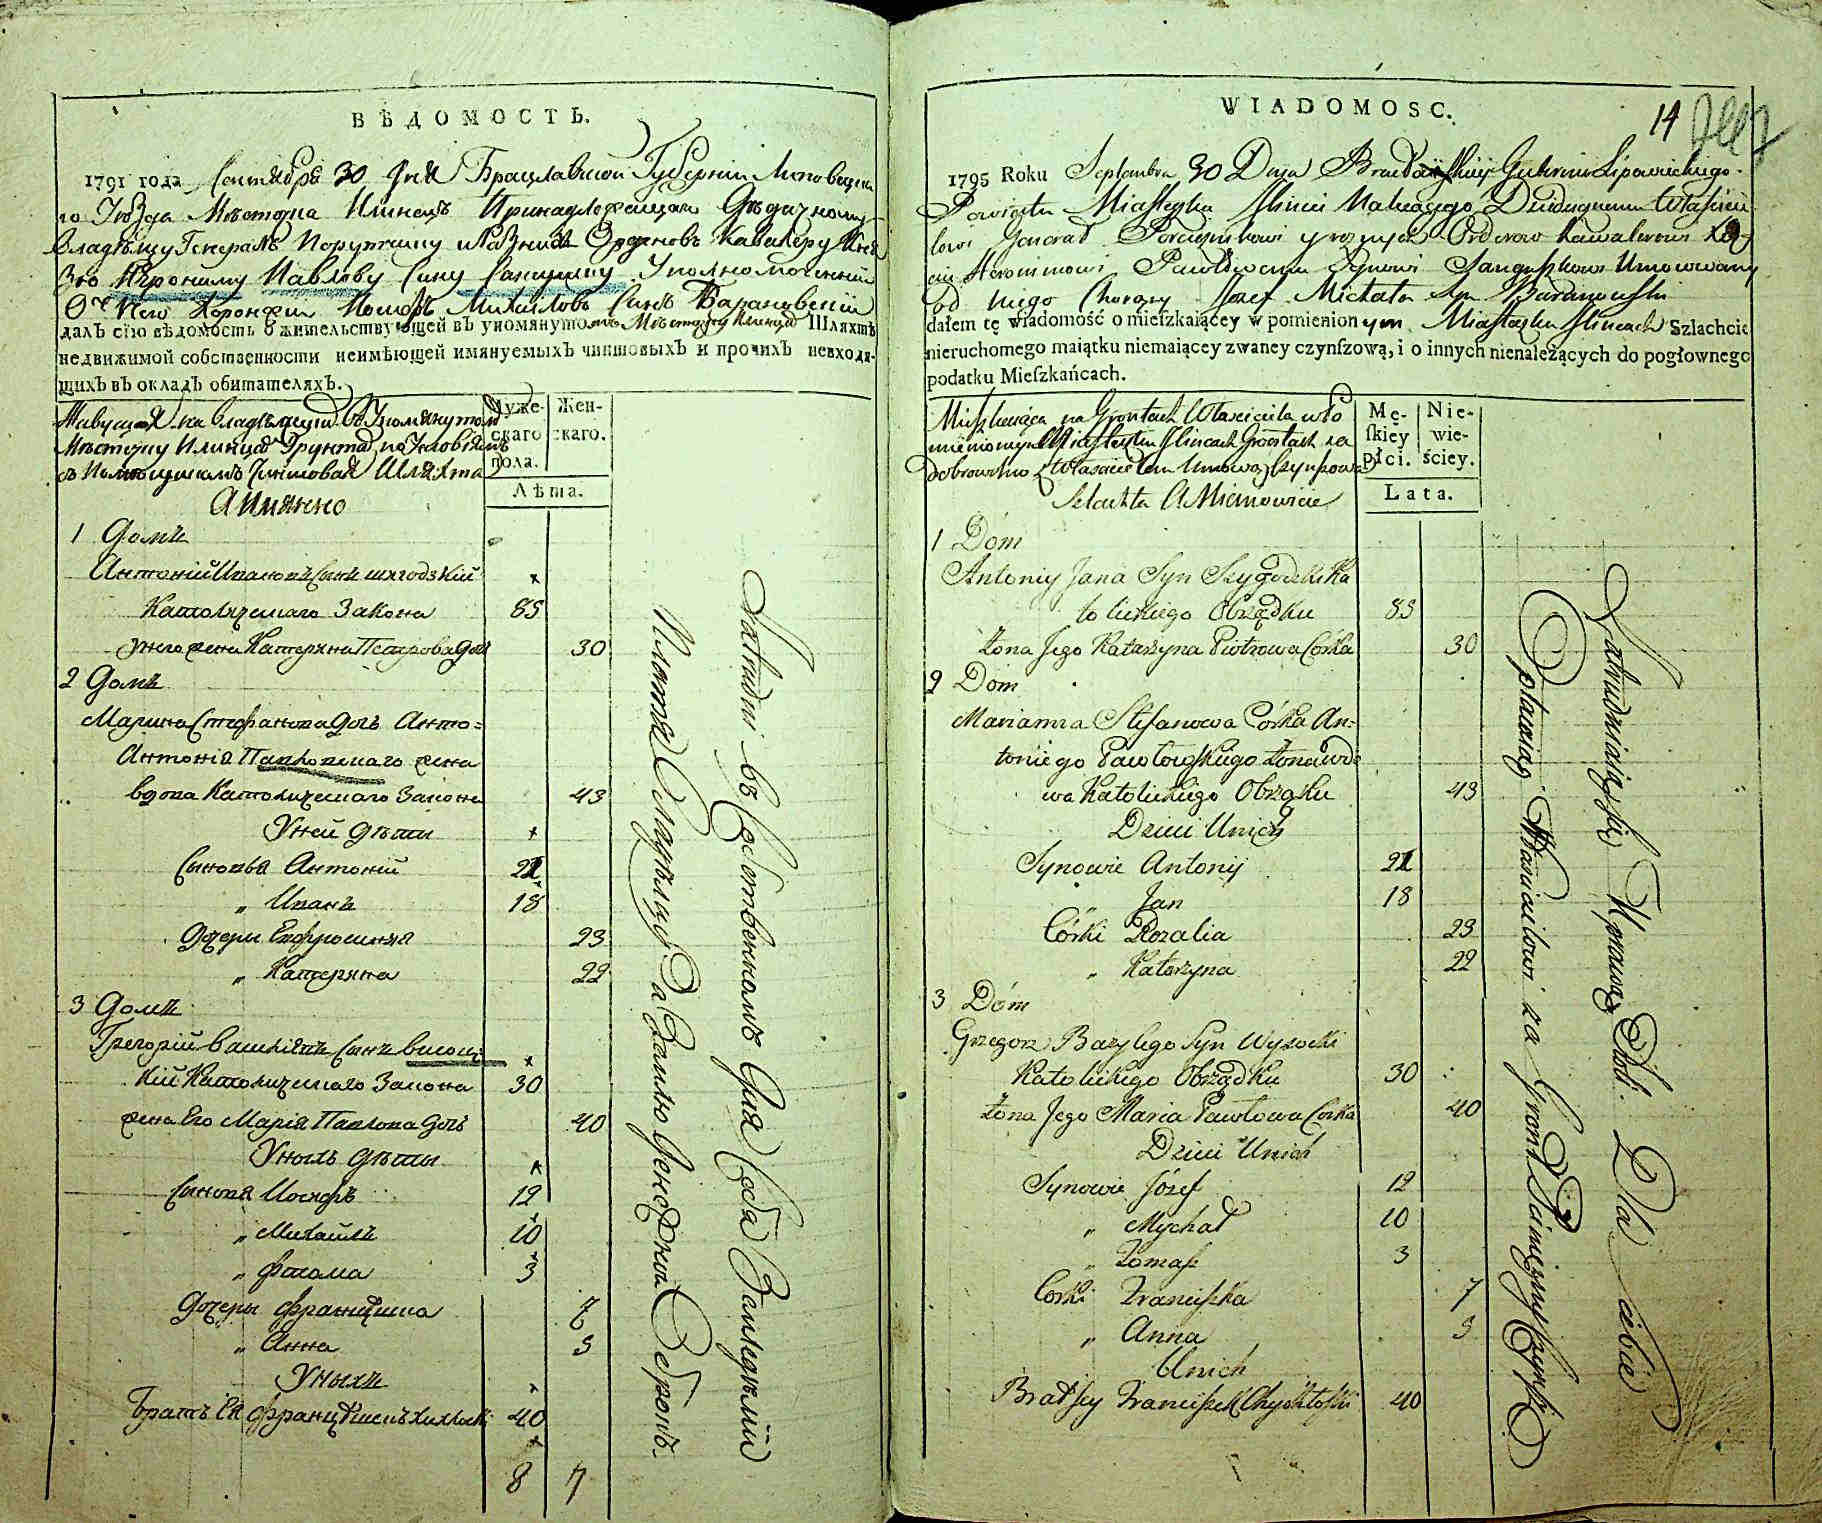 ВѢДОМОСТЬ.
1791 года Сентября 30 дня Брацлавской Губерніи Липовецка
го Уѣзда Мѣстечка Илинецъ Принадлежащаго Дѣдичному
Владѣльцу Генералъ Порутчику и Разныхъ Орденовъ Кавалеру Кня
зю Іерониму Павлову Сыну Сангушку Уполномоченный
Отъ Него Хорунжій Іосифъ Михайловъ Сынъ Барановскій
далъ сію вѣдомость о жительствующей въ упомянутомъ Мѣстечку Илинцахъ Шляхтѣ
недвижимой собственности неимѣющей имянуемыхъ чиншовыхъ и прочихъ невходя-
щихъ въ окладъ обитателяхъ.
Живущая на Владѣльца въ Упомянутомъ
Мѣстечку Илинцахъ Грунтахъ по Условіямъ
съ Помѣщикомъ Чиншовая Шляхта
А Имянно
Муже-
скаго
пола.
Жен-
скаго.
Лѣта.
1 Домъ
Антоній Ивановъ Сынъ
Католическаго Закона 85
У него жена Катерина Петрова Дочь 30
2 Домъ
Марина Стефанова Дочь Анто-
Антонія Павловскаго жена
вдова Католическаго Закона 43
У ней дѣти
Сыновья Антоній 22
„ Иванъ 18
Дочери Ефросинія 23
„ Катерина 22
3 Домъ
Григорій Васильевъ Сынъ Висоц-
кій Католическаго Закона 30
жена Его Марія Павлова Дочь 40
У нихъ дѣти
Сыновья Іосифъ 12
„ Михаилъ 10
„ Фтома 3
Дочери Францишка 7
„ Анна 5
У нихъ
Братъ Ея Францишекъ 40
8 7
Платя Владѣльцу За Землю Денежной Оброкъ.
WIADOMOSC.
14
1795 Roku Septembra 30 Dnia Bracławskiey Gubernii Lipowieckiego
Powiatu Miasteczka Iliniec Należącego Dziedzicznemu Właścicie
lowi Generał Porucznikowi y roznych Orderow Kawalerowi Xią-
ciu Heronimowi Pawłowemu Synowi Sanguszkowi Umocowany
od niego Chorąży Jozef Michała Syn Baranowski
dałem tę wiadomość o mieſzkaiącey w pomienionym Miasteczku Ilincach Szlachcie
nieruchomego maiątku niemaiącey zwaney czynſzową, i o innych nienależących do pogłownego
podatku Mieſzkańcach.
Mieszkaiąca na Grontach Właściciela w Po
mienionym Miasteczku Ilincach Grontach za
dobrowolną z Właścicielem Umową Czynszowa
Szlachta A Mianowicie
Mę-
ſkiey
płci.
Nie-
wie-
ściey.
Lata.
1 Dóm
Antoniy Jana Syn Szygodzki Ka
tolickiego Obrządku 85
Żona Jego Katarzyna Piotrowa Córka 30
2 Dóm
Marianna Stefanowa Córka An-
toniego Pawłowskiego Żona wdo
wa Katolickiego Obrządku 43
Dzieci Unich
Synowie Antonij 22
„ Jan 18
Córki Rozalia 23
„ Katarzyna 22
3 Dóm
Grzegorz Bazylego Syn Wysocki
Katolickiego Obrządku 30
Żona Jego Maria Pawłowa Córka 40
Dzieci Unich
Synowie Józef 12
„ Mychał 10
„ Tomasz 3
Corki Franciszka 7
„ Anna 5
Unich
Brat Jey Franciszek 40
Opłacaią Właścicielowi za Gront Czynsz
Zatrudniaią się Uprawą Roli Dla siebie